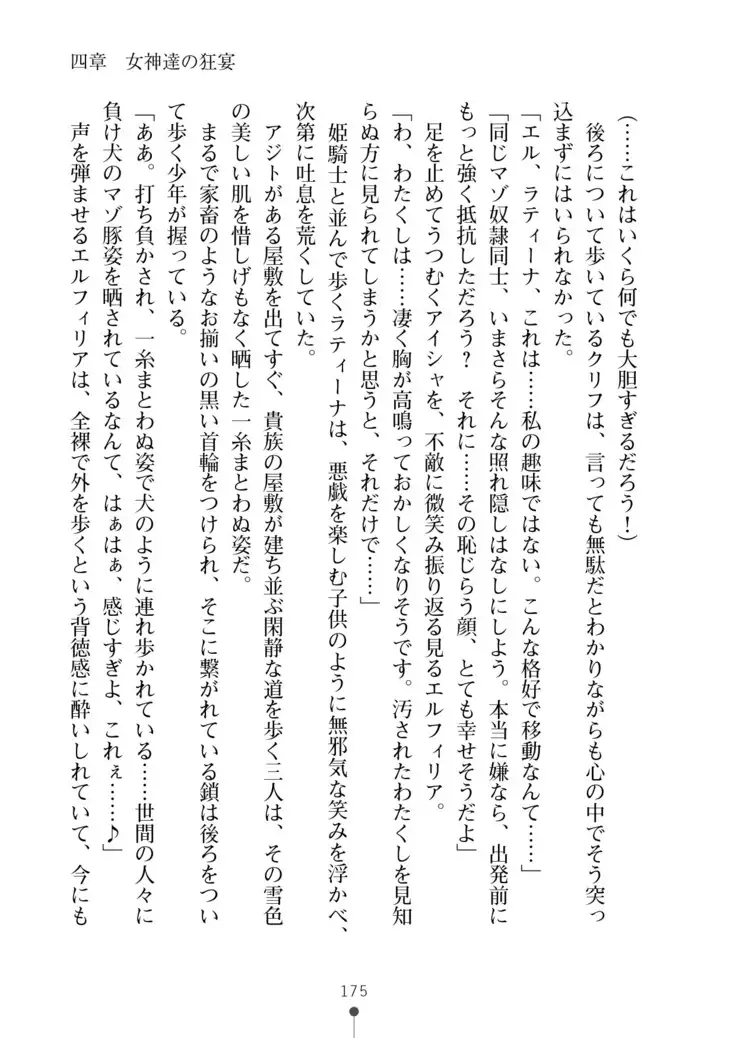 四章　女神達の狂宴
（……これはいくら何でも大胆すぎるだろう！）
　後ろについて歩いているクリフは、言っても無駄だとわかりながらも心の中でそう突っ
込まずにはいられなかった。
「エル、ラティーナ、これは……私の趣味ではない。こんな格好で移動なんて……」
「同じマゾ奴隷同士、いまさらそんな照れ隠しはなしにしよう。本当に嫌なら、出発前に
もっと強く抵抗しただろう？　それに……その恥じらう顔、とても幸せそうだよ」
　足を止めてうつむくアイシャを、不敵に微笑み振り返る見るエルフィリア。
「わ、わたくしは……凄く胸が高鳴っておかしくなりそうです。汚されたわたくしを見知
らぬ方に見られてしまうかと思うと、それだけで……」
　姫騎士と並んで歩くラティーナは、悪戯を楽しむ子供のように無邪気な笑みを浮かべ、
次第に吐息を荒くしていた。
　アジトがある屋敷を出てすぐ、貴族の屋敷が建ち並ぶ閑静な道を歩く三人は、その雪色
の美しい肌を惜しげもなく晒した一糸まとわぬ姿だ。
　まるで家畜のようなお揃いの黒い首輪をつけられ、そこに繋がれている鎖は後ろをつい
て歩く少年が握っている。
「ああ。打ち負かされ、一糸まとわぬ姿で犬のように連れ歩かれている……世間の人々に
負け犬のマゾ豚姿を晒されているなんて、はぁはぁ、感じすぎよ、これぇ……♪」
　声を弾ませるエルフィリアは、全裸で外を歩くという背徳感に酔いしれていて、今にも
175